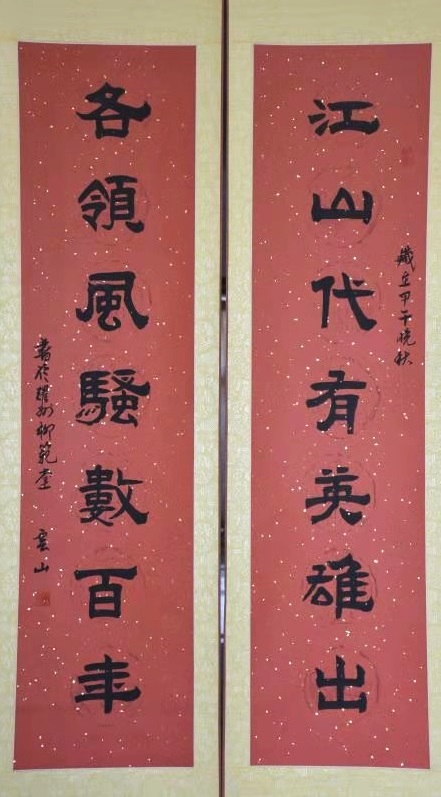 江山代有英雄出
歲在甲午晚秋
各領風騷數百年
書於耀州柳範堂 雲山